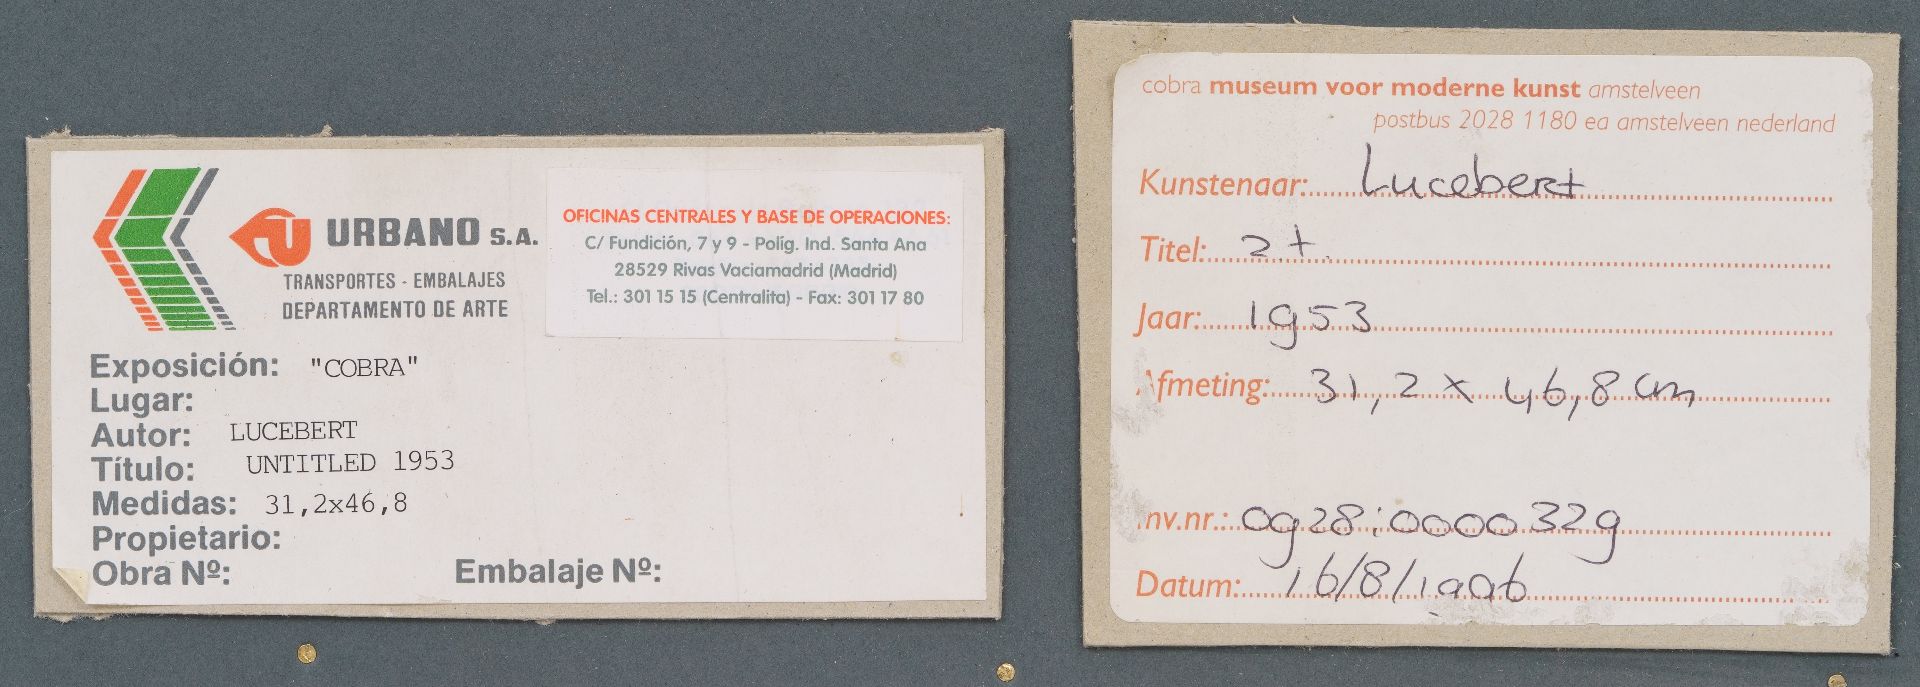 URBANO S.A.
TRANSPORTES - EMBALAJES
DEPARTAMENTO DE ARTE
OFICINAS CENTRALES Y BASE DE OPERACIONES:
C/ Fundición, 7 y 9 - Políg. Ind. Santa Ana
28529 Rivas Vaciamadrid (Madrid)
Tel.: 301 15 15 (Centralita) - Fax: 301 17 80
Exposición: "COBRA"
Lugar:
Autor: LUCEBERT
Título: UNTITLED 1953
Medidas: 31,2x46,8
Propietario:
Obra Nº: Embalaje Nº:
cobra museum voor moderne kunst amstelveen
postbus 2028 1180 ea amstelveen nederland
Kunstenaar: Lucebert
Titel: zt.
Jaar: 1953
Afmeting: 31,2 x 46,8 cm
nv.nr.: 0928:0000329
Datum: 16/8/1996